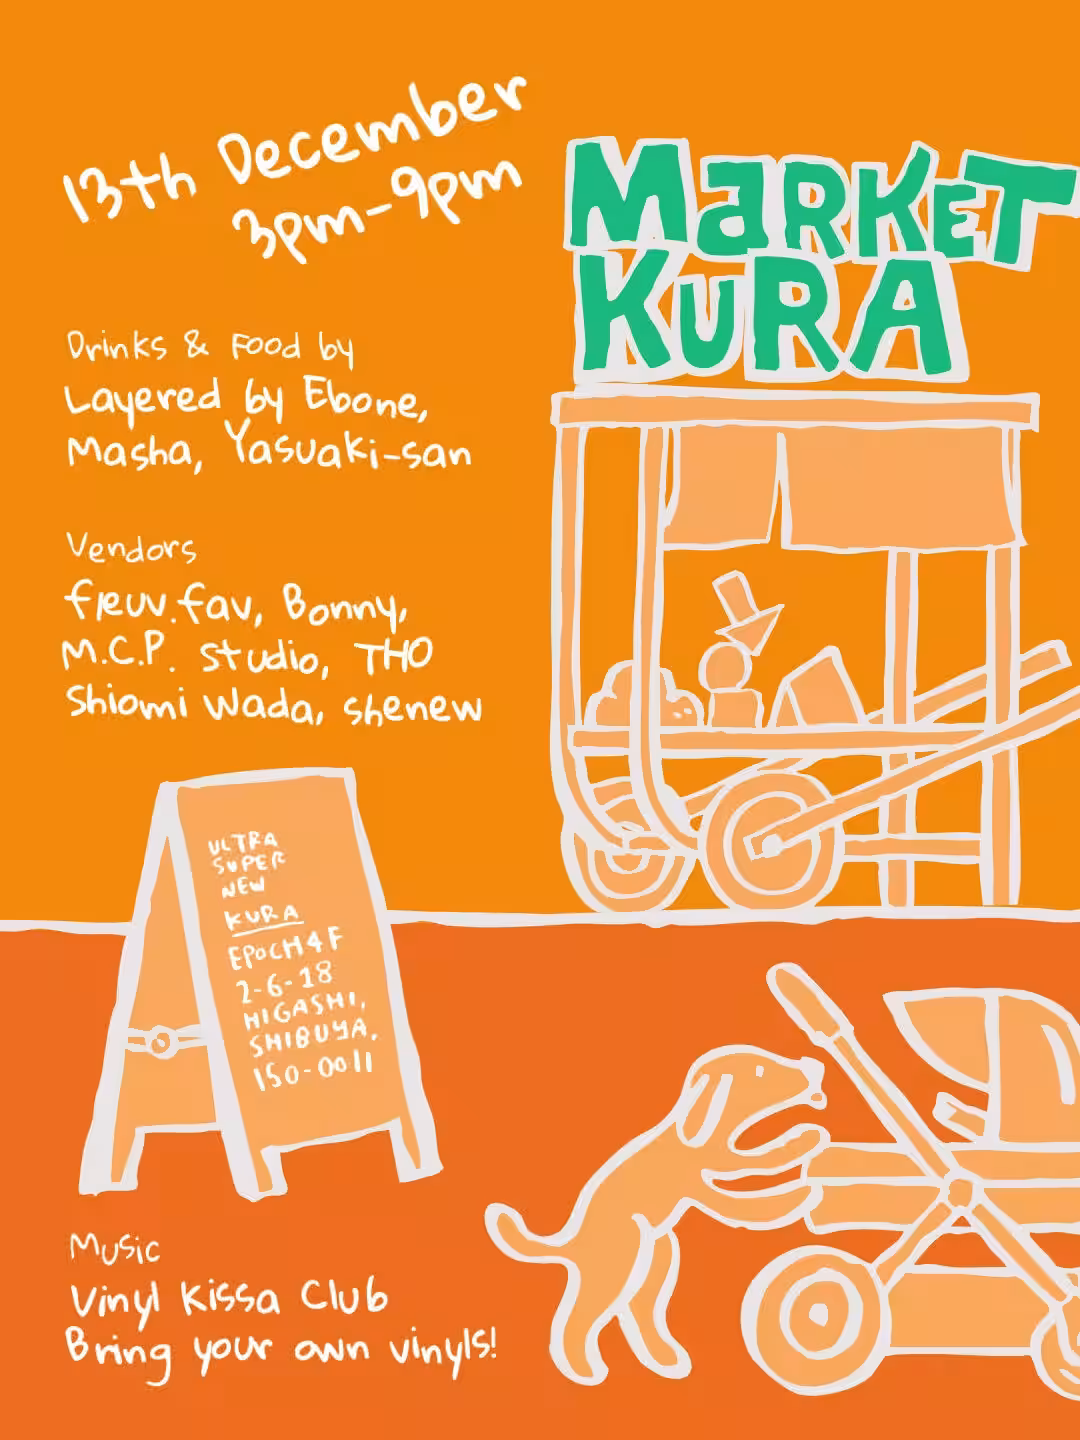 13th December
3pm-9pm
MARKET
KURA
Drinks & Food by
Layered by Ebone,
Masha, Yasuaki-san
Vendors
fleuv.fav, Bonny,
M.C.P. Studio, THO
Shiomi Wada, shenew
ULTRA
SUPER
NEW
KURA
EPOCH 4F
2-6-18
HIGASHI,
SHIBUYA,
150-0011
Music
Vinyl Kissa Club
Bring your own vinyls!